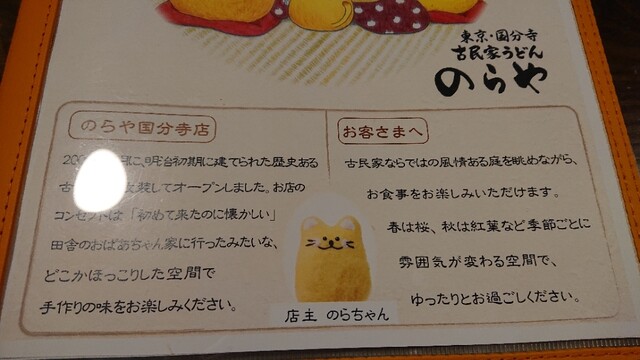 東京・国分寺
古民家うどん
のらや
のらや国分寺店
200 に、明治初期に建てられた歴史ある
古 装してオープンしました。お店の
コンセプトは「初めて来たのに懐かしい」
田舎のおばあちゃん家に行ったみたいな、
どこかほっこりした空間で
手作りの味をお楽しみください。
お客さまへ
古民家ならではの風情ある庭を眺めながら、
お食事をお楽しみいただけます。
春は桜、秋は紅葉など季節ごとに
雰囲気が変わる空間で、
ゆったりとお過ごしください。
店主 のらちゃん